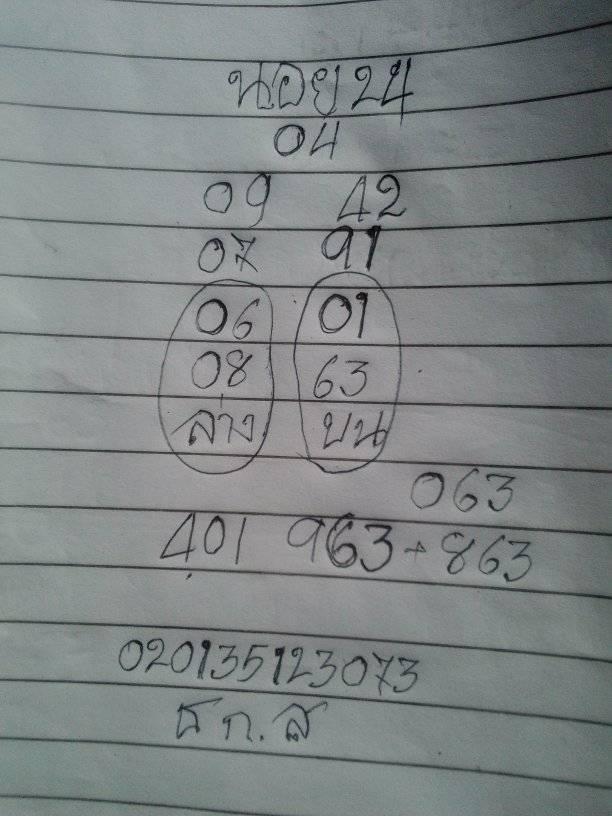 นอย 24
04
09 42
07 91
06 01
08 63
ล่าง บน
063
401 963 + 863
020135123073
ธ ก. ส